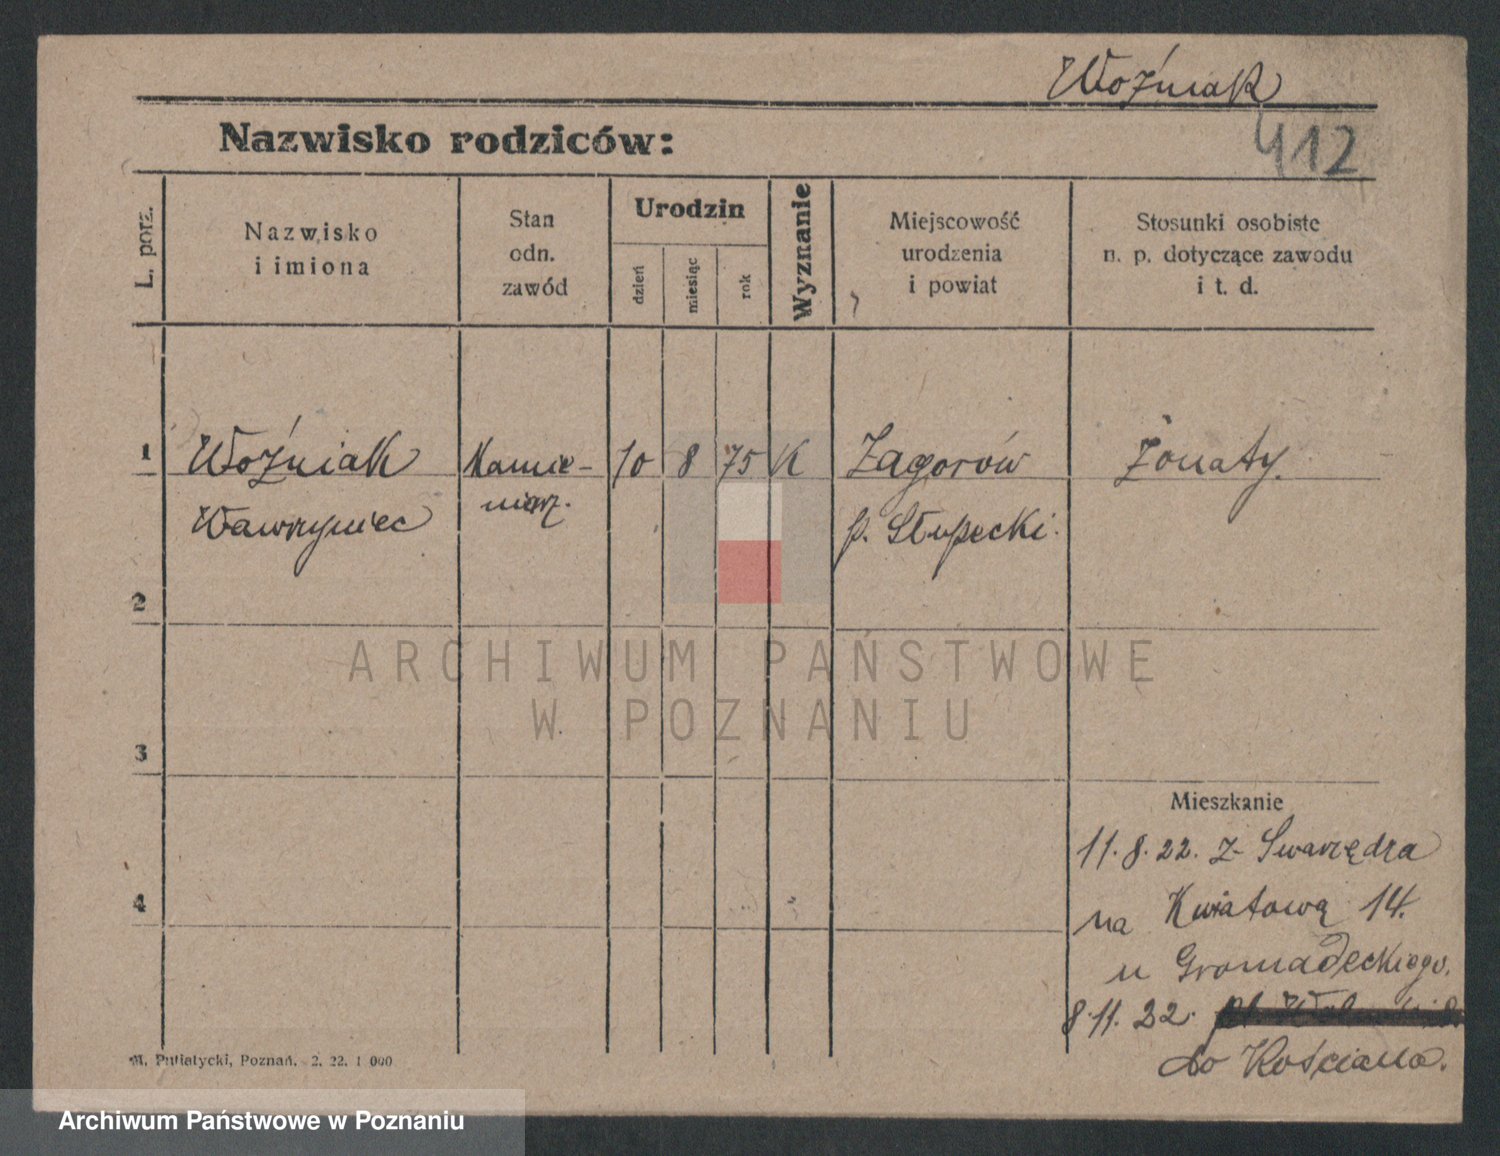 Woźniak
412
Nazwisko rodziców:
L. porz.
Nazwisko
i imiona
Stan
odn.
zawód
Urodzin
dzień
miesiąc
rok
Wyznanie
Miejscowość
urodzenia
i powiat
Stosunki osobiste
n. p. dotyczące zawodu
i t. d.
1
Woźniak
Wawrzyniec
Kamie-
niarz.
10
8
75
K
Zagorów
p. Słupecki.
Żonaty.
2
3
4
Mieszkanie
11.8.22. z Swarzędza
na Kwiatową 14.
u Gromadeckiego.
8.11.22.
do Kościana.
M. Putiatycki, Poznań. 2. 22. 1 000
ARCHIWUM PAŃSTWOWE
W POZNANIU
Archiwum Państwowe w Poznaniu